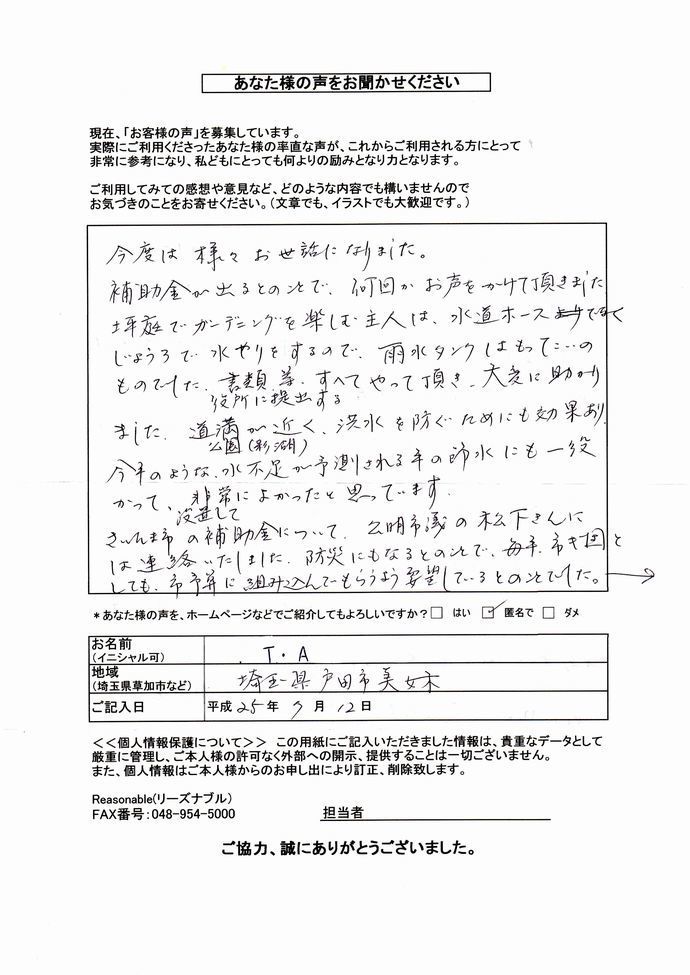 あなた様の声をお聞かせください
現在、「お客様の声」を募集しています。
実際にご利用くださったあなた様の率直な声が、これからご利用される方にとって
非常に参考になり、私どもにとっても何よりの励みとなり力となります。
ご利用してみての感想や意見など、どのような内容でも構いませんので
お気づきのことをお寄せください。（文章でも、イラストでも大歓迎です。）
今度は 様々 お世話になりました。
補助金が出るとのことで、何回か お声をかけて頂きました
坪庭でガーデニングを楽しむ主人は、水道ホースよりでなく
じょうろで水やりをするので、雨水タンクはもってこいの
ものでした。書類等、すべてやって頂き、大変に助かり
役所に提出する
ました。道満が近く、洪水を防ぐためにも効果あり
公園(彩湖)
今年のような、水不足が予測される年の節水にも一役
かって、非常によかったと思っています。
設置して
さいたま市の補助金について、公明市議の松下さんに
は連絡いたしました。防災にもなるとのことで、毎年、市を国と
しても、市予算に組み込んでもらうよう要望しているとのことでした。→
*あなた様の声を、ホームページなどでご紹介してもよろしいですか？□ はい ☑ 匿名で □ ダメ
お名前
(イニシャル可)
T・A
地域
(埼玉県草加市など)
埼玉県戸田市美女木
ご記入日
平成 25 年 7 月 12 日
<<個人情報保護について>> この用紙にご記入いただきました情報は、貴重なデータとして
厳重に管理し、ご本人様の許可なく外部への開示、提供することは一切ございません。
また、個人情報はご本人様からのお申し出により訂正、削除致します。
Reasonable(リーズナブル)
FAX番号：048-954-5000
担当者
ご協力、誠にありがとうございました。